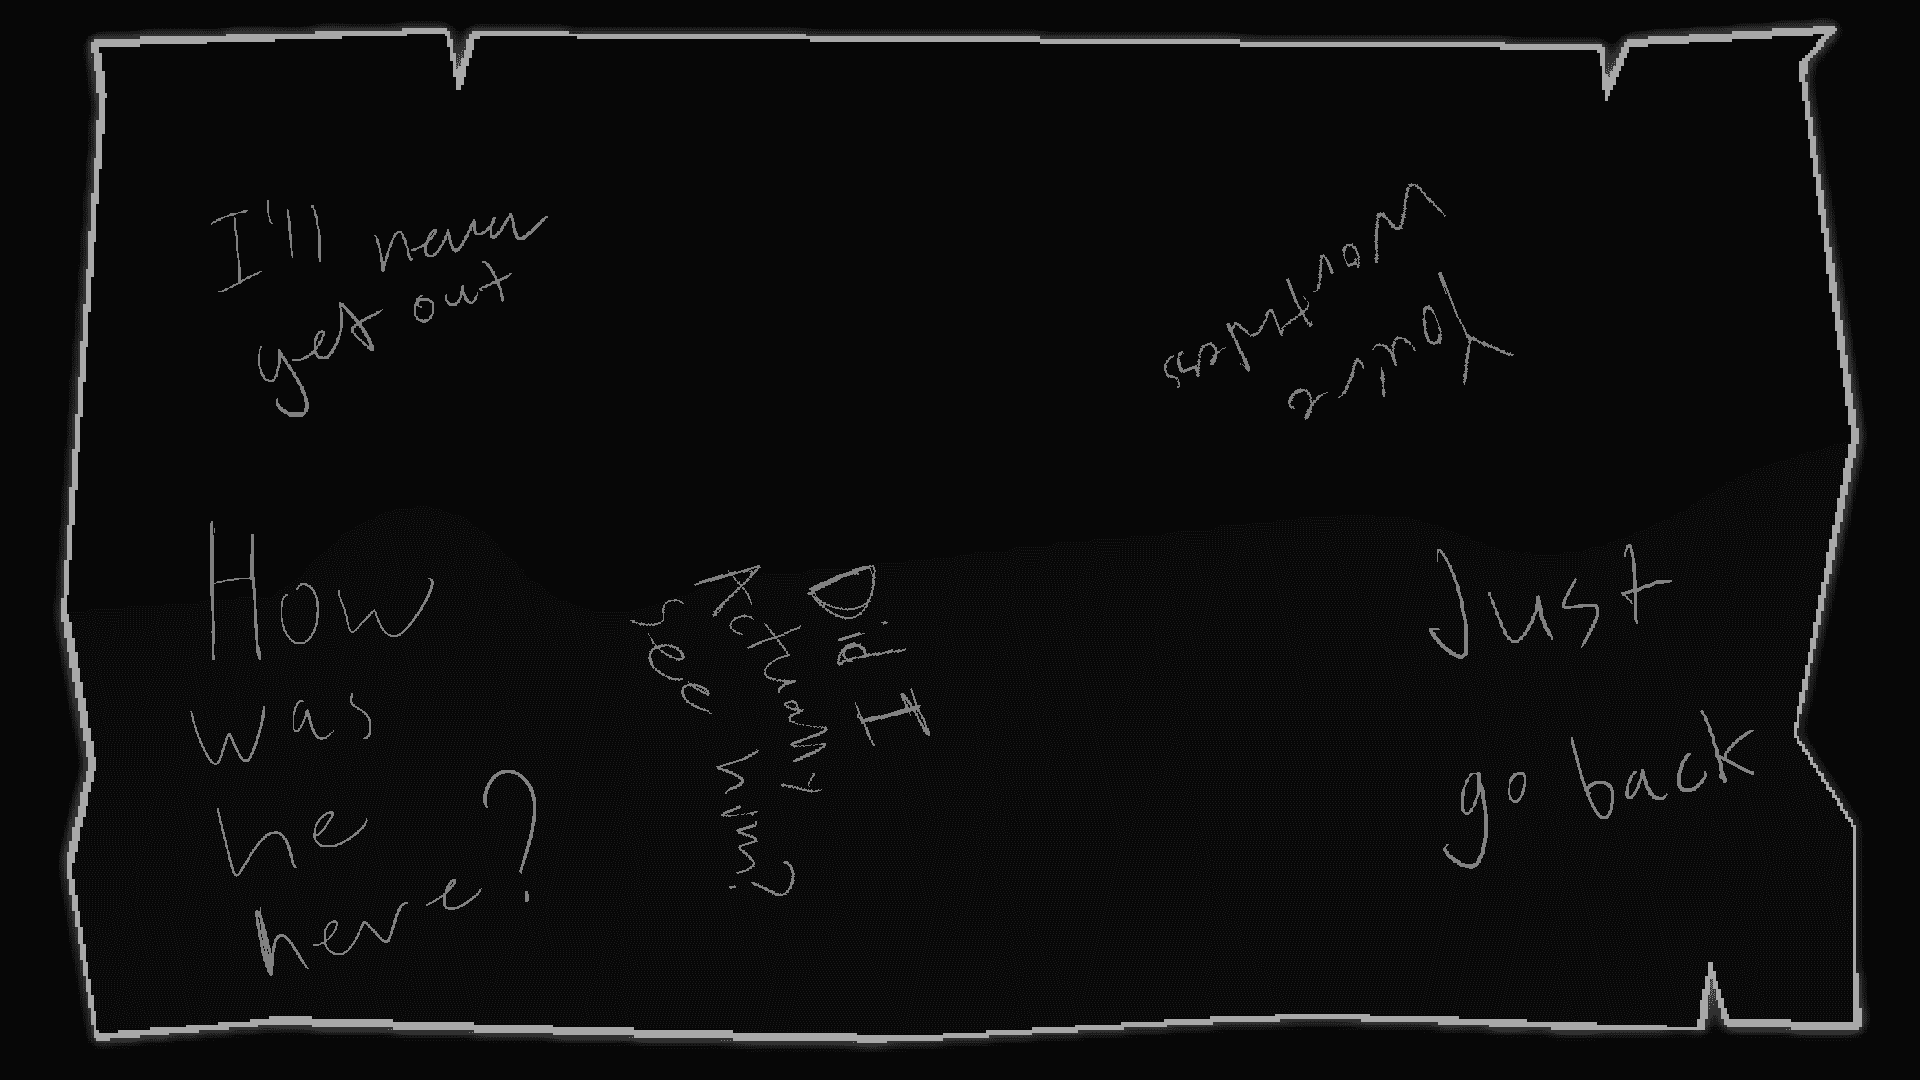 I'll never
get out
Your
Worthless
How
was
he
here?
Did I
Actually
see him?
Just
go back